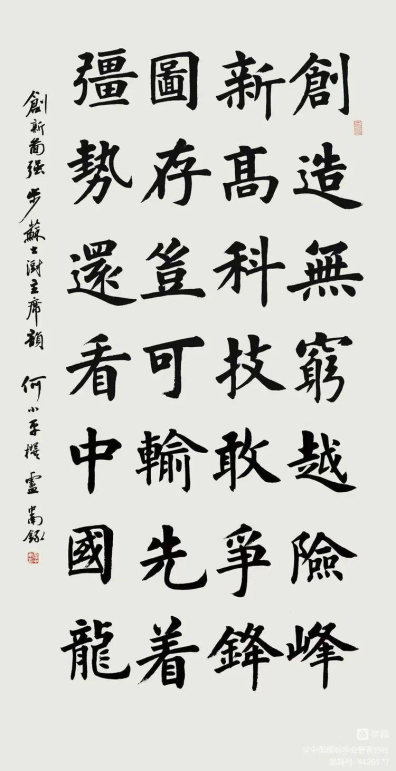 創造無窮越險峰
新高科技敢爭鋒
圖存豈可輸先着
彊勢還看中國龍
創新啚强 步蘇士澍主席韻 何小平撰 盧中南錄